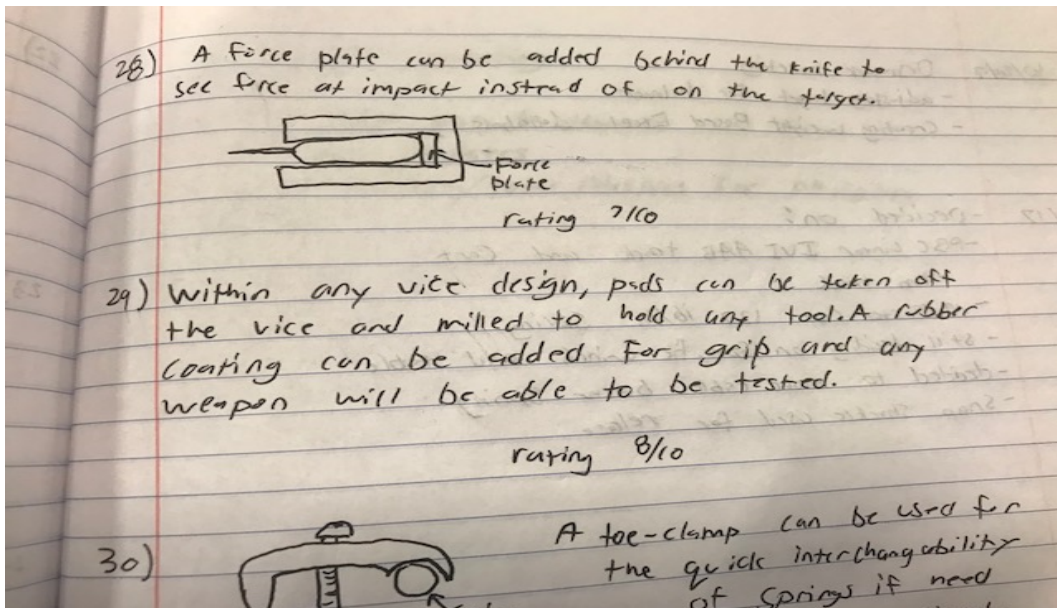 28) A force plate can be added behind the knife to
see force at impact instead of on the target.
Force
plate
rating 7/10
29) Within any vice design, pads can be taken off
the vice and milled to hold any tool. A rubber
coating can be added for grip and any
weapon will be able to be tested.
rating 8/10
30) A toe-clamp can be used for
the quick interchangability
of springs if need